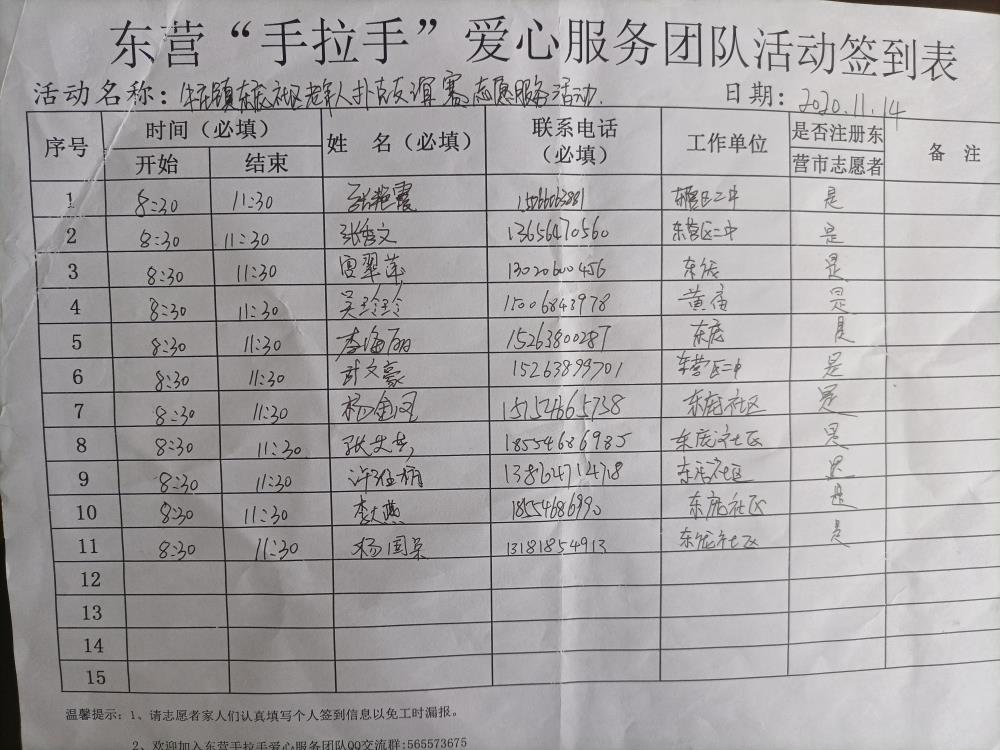 东营“手拉手”爱心服务团队活动签到表
活动名称：牛庄镇东庞社区老年人扑克友谊赛志愿服务活动. 日期：2020.11.14
序号 时间（必填） 姓 名（必填） 联系电话（必填） 工作单位 是否注册东营市志愿者 备 注
开始 结束
1 8:30 11:30 张艳霞 东营区二中 是
2 8:30 11:30 张秀文 13656470560 东营区二中 是
3 8:30 11:30 翠萍 13020600456 是
4 8:30 11:30 吴玲玲 15006843978 黄庙 是
5 8:30 11:30 李海丽 15263800287 东庞 是
6 8:30 11:30 文豪 15263899701 东营区二中 是
7 8:30 11:30 杨金凤 15154665738 东庞社区 是
8 8:30 11:30 张 18554686985 东庞社区 是
9 8:30 11:30 许 13864714708 社区 是
10 8:30 11:30 李大燕 1855468699 东庞社区 是
11 8:30 11:30 杨国 13181854913 东庞社区 是
12
13
14
15
温馨提示：1、请志愿者家人们认真填写个人签到信息以免工时漏报。
2、欢迎加入东营手拉手爱心服务团队QQ交流群:565573675